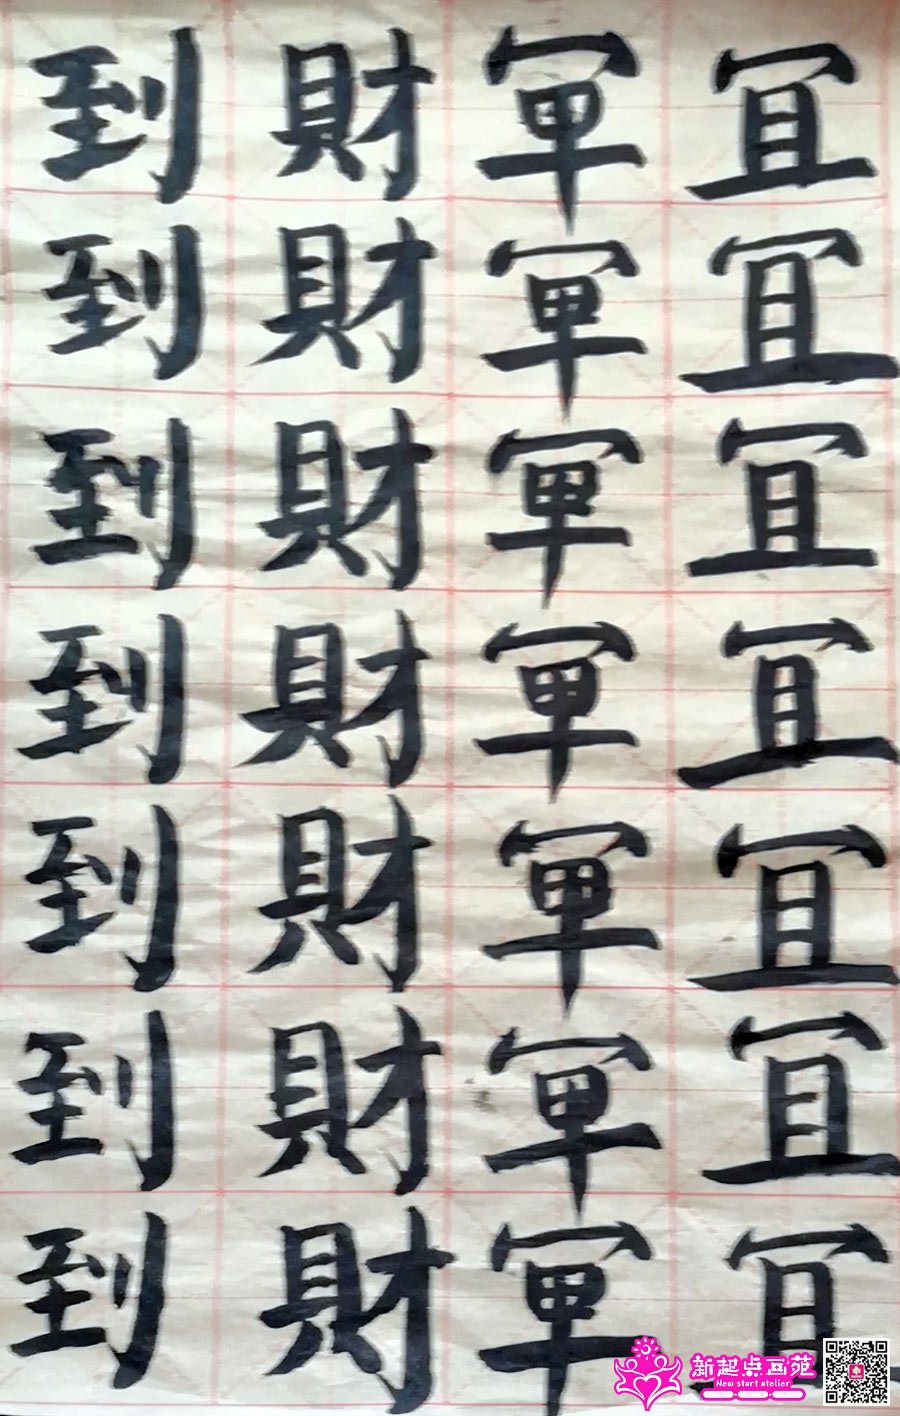 冝冝冝冝冝冝冝
軍軍軍軍軍軍軍
財財財財財財財
到到到到到到到
新起点画苑
New start atelier